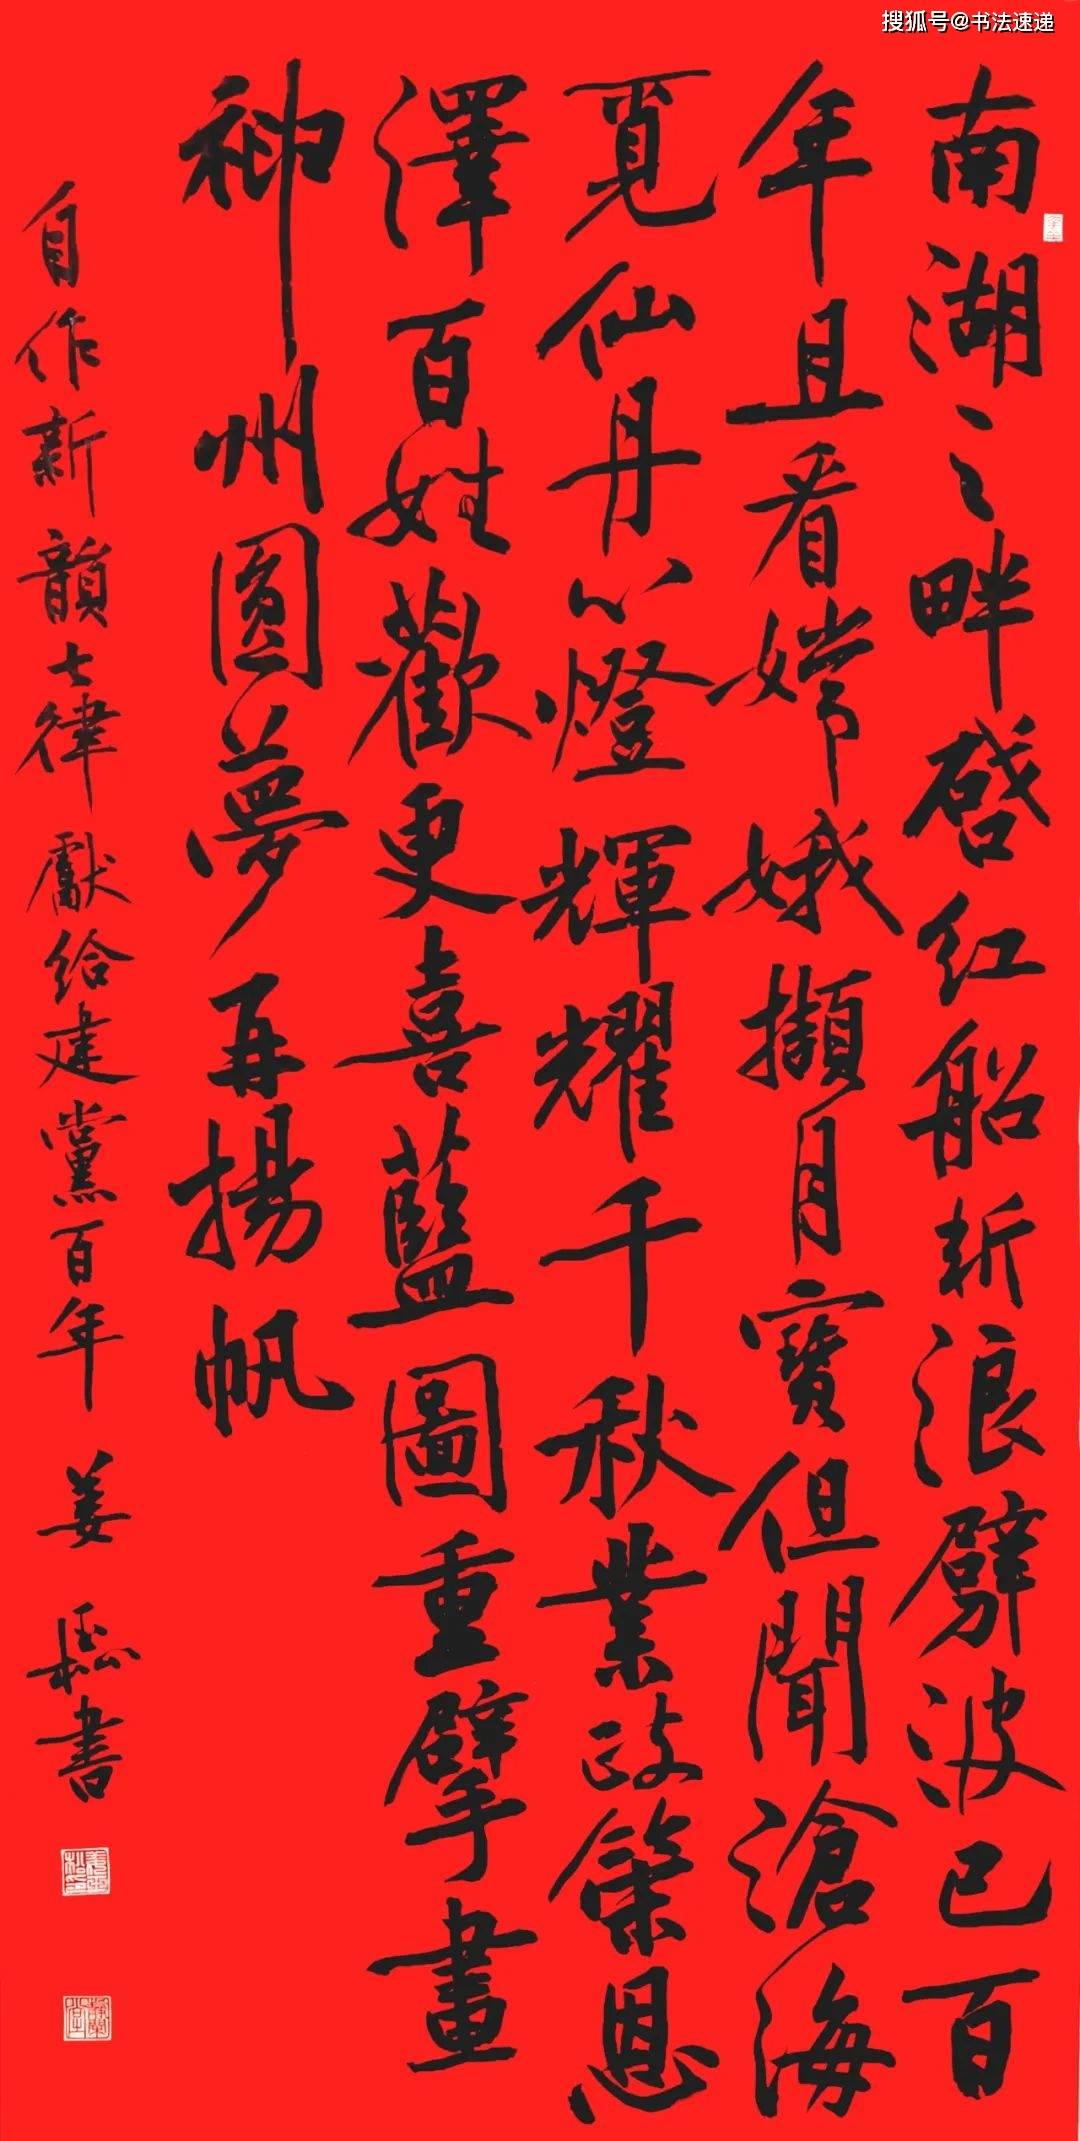 搜狐号@书法速递
南湖之畔啓红船斩浪劈波已百
年且看嫦娥擷月寶但聞滄海
覓仙丹心燈輝耀千秋業政策恩
澤百姓歡更喜藍圖重擘畫
神州圓夢再揚帆
自作新韻七律獻給建黨百年 姜 書